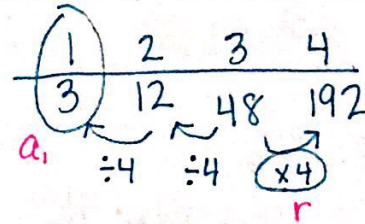 1 2 3 4
3 12 48 192
a₁ ÷4 ÷4 ×4
r